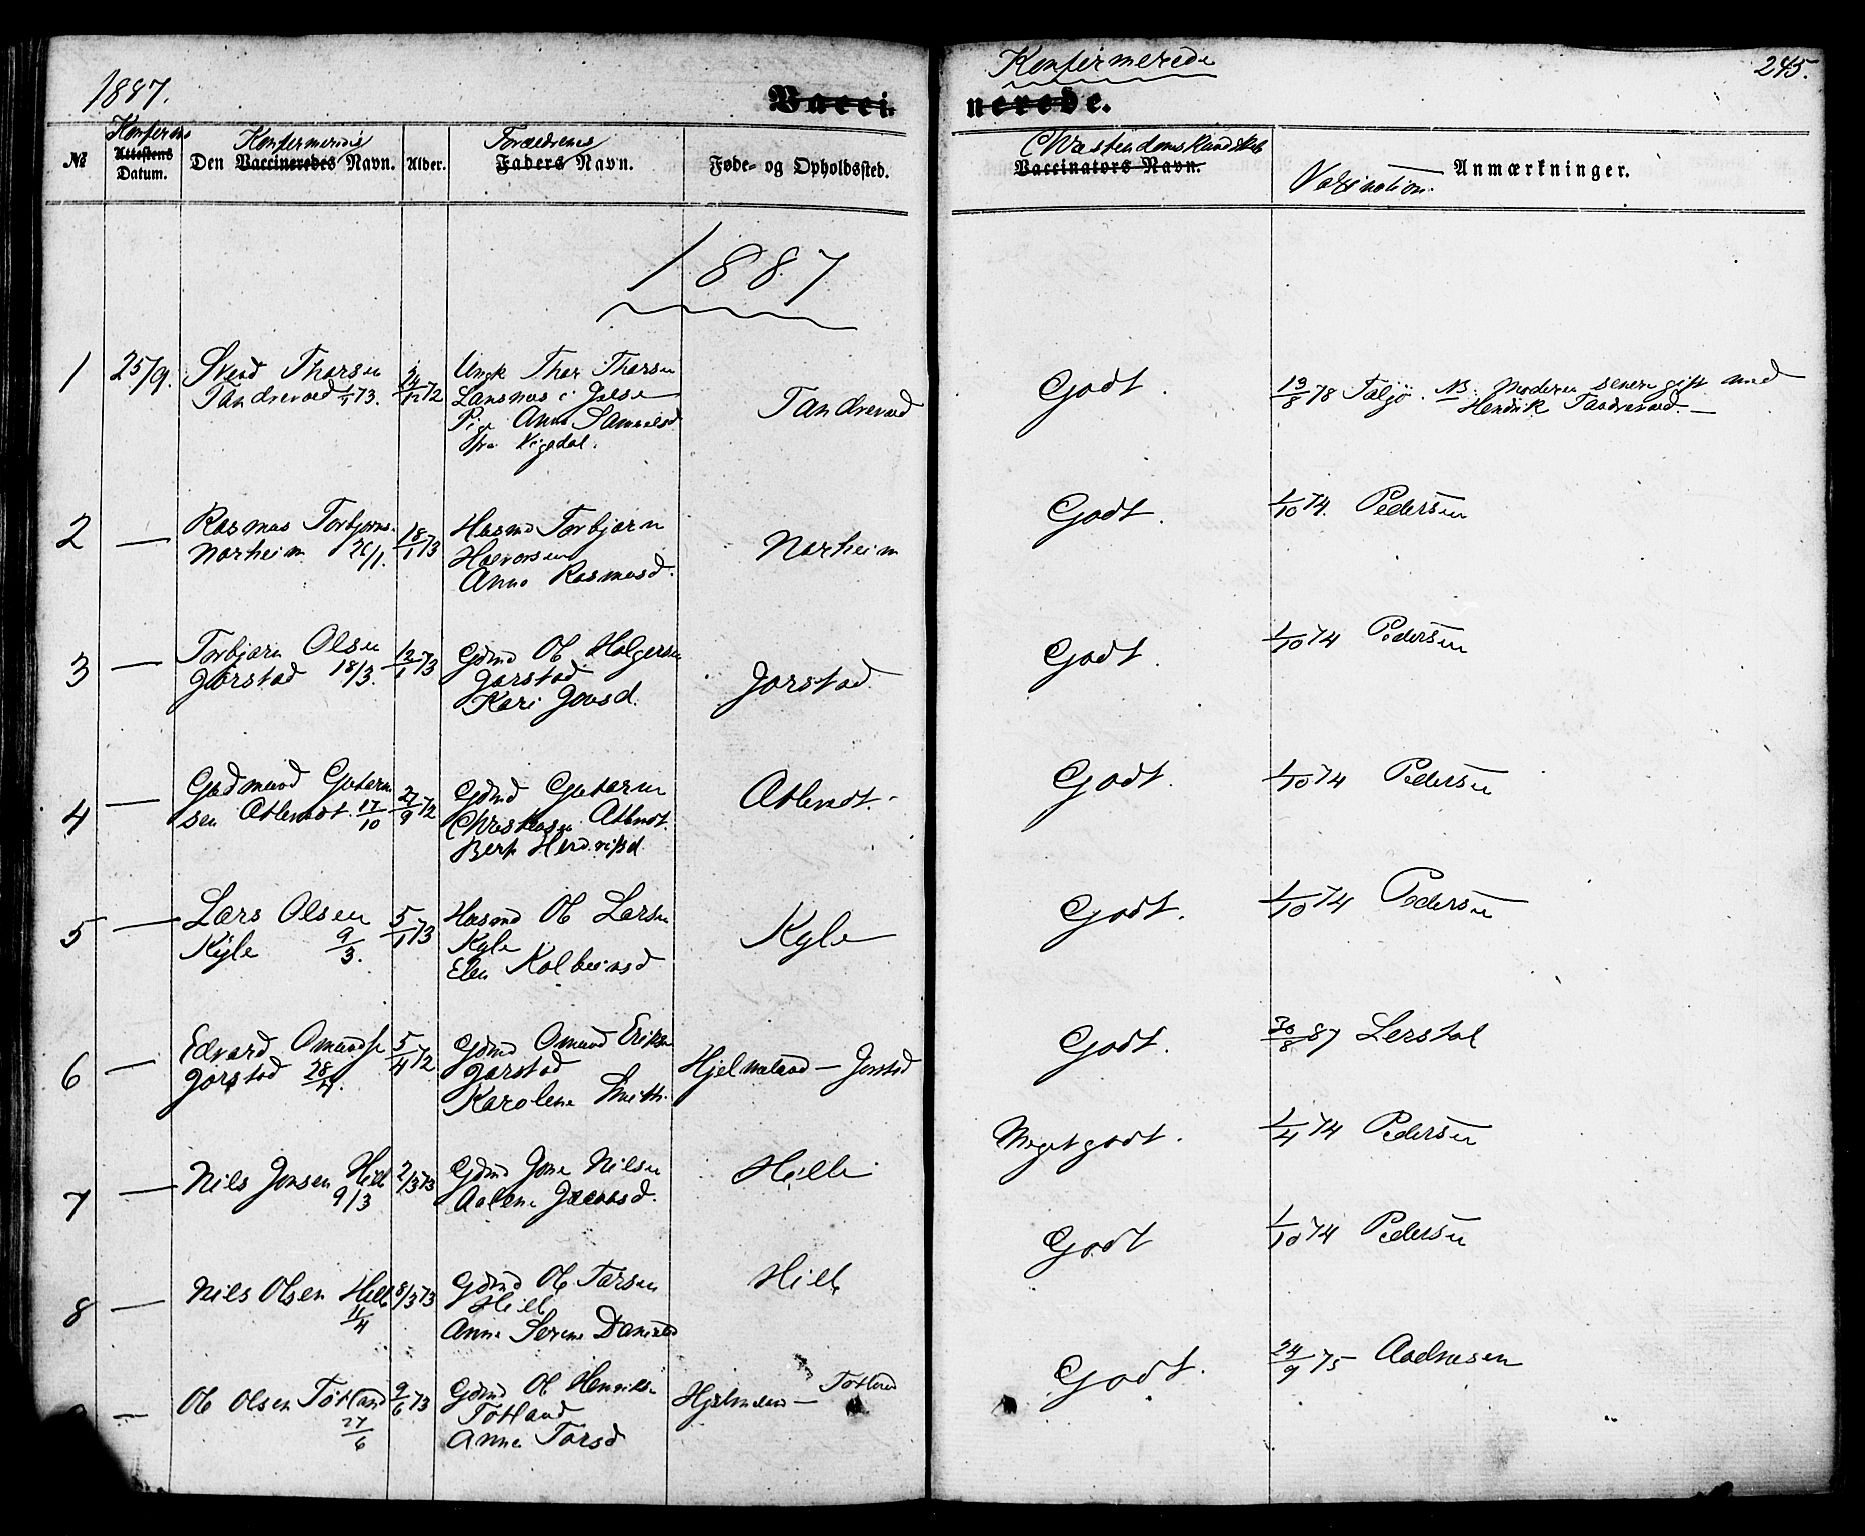 1887.
Konfirmerede
245.
Vacci-
nerede.
Konferens
Konfirmeredes
Forældrenes
Christendomskundskab
№
Attestens
Datum.
Den Vaccineredes Navn.
Alder.
Faders Navn.
Føde- og Opholdssted.
Vaccinators Navn.
Vaxination.
Anmærkninger.
1887
1 25/9. Svend Thorsen 24/12 72 Ungk Thor Thorsen
Tandrevold 1/1 73. Lansnæs i Jelse Tandrevold Godt. 13/8 78 Taljø. NB. Moderen senere gift med
Pige Anna Samuelsd Hendrik Tandrevold.
fra Vigedal.
2 — Rasmus Torbjørns. 18/1 73 Husmd Torbjørn Godt. 1/10 74. Pedersen
Norheim 26/1. Halvorsen Norheim
Anna Rasmusd.
3 — Torbjørn Olsen 12/1 73 Gdmd Ol Holgersen Godt. 1/10 74 Pedersen
Jørstad 18/3. Jørstad Jorstad
Kari Jonsd.
4 — Gudmund Gutorm 27/9 72 Gdmd Gutorm Atlendt. Godt. 1/10 74 Pedersen
sen Atlendt. 17/10 Christensen Atlendt.
Berta Hendriksd
5 — Lars Olsen 5/1 73 Husmd Ol Larsen Godt. 1/10 74 Pedersen
Kyle 9/3. Kyle Kyle
Elen Kolbeinsd
6 — Edvard Omundsen 5/4 72 Gdmd Omund Eriksen Godt. 30/8 87 Lerstol
Jørstad 28/4. Jørstad Hjelmeland — Jorstad
Karolene Smith.
7 — Nils Jonsen Hille 2/3 73 Gdmd Jone Nilsen Hille Meget godt. 1/4 74 Pedersen
9/3 Aalene
8 — Nils Olsen Hille 8/3 73 Gdmd Ol Tarsen Hille Godt 1/10 74 Pedersen
11/4 Hille
Anne Serine Danielsd
— Ol Olsen Totland 9/6 73 Gdmd Ol Henriksen Hjelmeland — Totland Godt. 24/9 75 Aadnesen
27/6 Totland
Anna Torsd